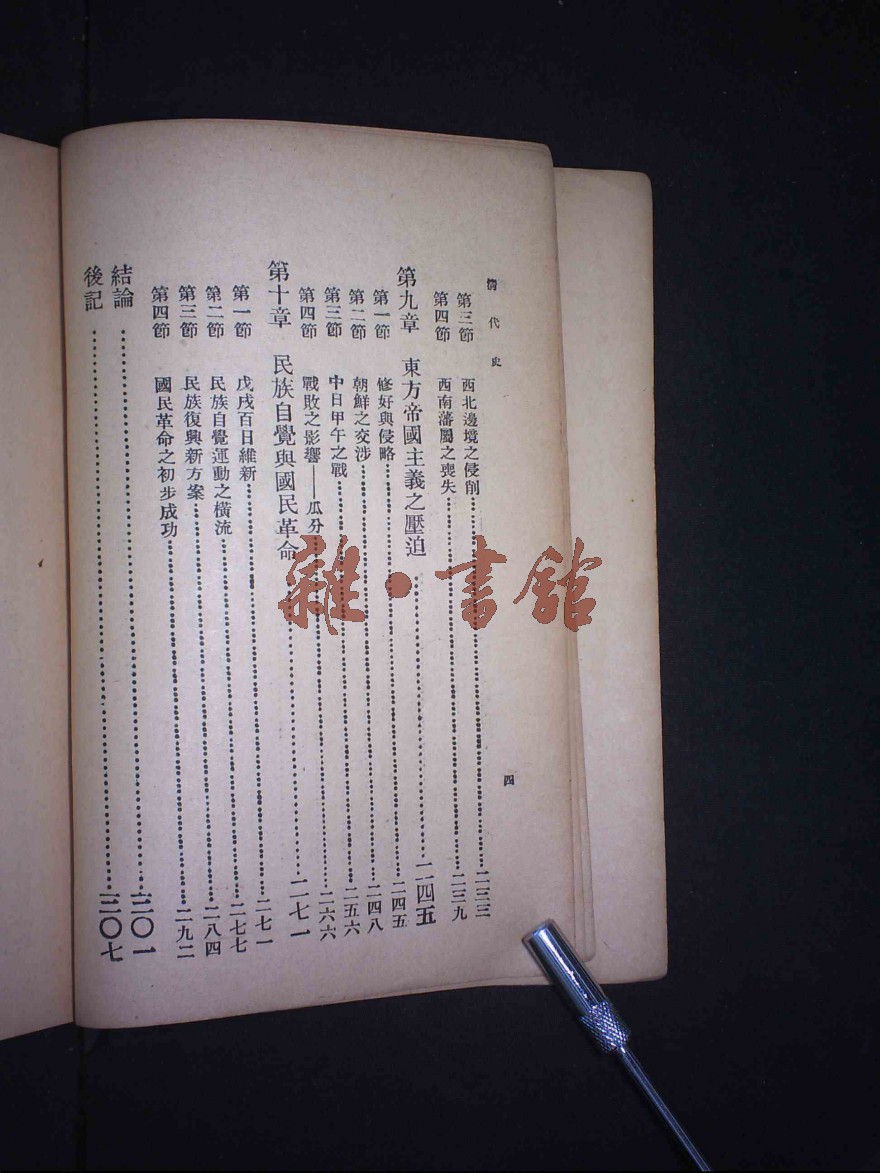 清代史
第三節 西北邊境之侵削 二三三
第四節 西南藩屬之喪失 二三九
第九章 東方帝國主義之壓迫 二四五
第一節 修好與侵略 二四五
第二節 朝鮮之交涉 二四八
第三節 中日甲午之戰 二五六
第四節 戰敗之影響——瓜分 二六六
第十章 民族自覺與國民革命 二七一
第一節 戊戌百日維新 二七一
第二節 民族自覺運動之橫流 二七七
第三節 民族復興新方案 二八四
第四節 國民革命之初步成功 二九二
結論 三〇一
後記 三〇七
四
雜·書館